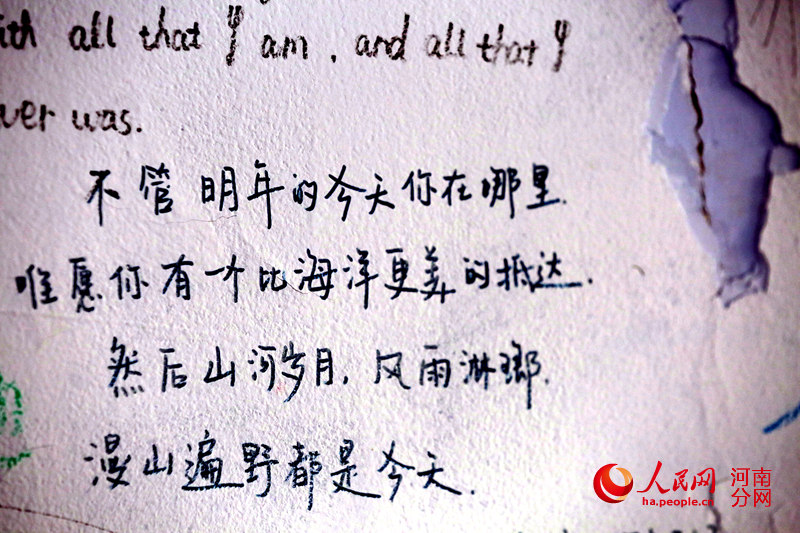 all that I am, and all that I
was.
不管明年的今天你在哪里.
唯愿你有一个比海洋更美的抵达.
然后山河岁月,风雨淋瑯.
漫山遍野都是今天.
人民网 河南分网
ha.people.cn